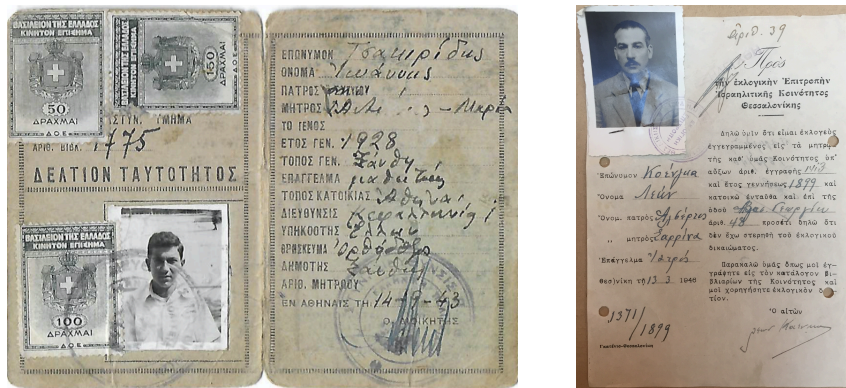 ΒΑΣΙΛΕΙΟΝ ΤΗΣ ΕΛΛΑΔΟΣ
ΚΙΝΗΤΟΝ ΕΠΙΣΗΜΑ
50
ΔΡΑΧΜΑΙ
Δ.Ο.Ε.
ΒΑΣΙΛΕΙΟΝ ΤΗΣ ΕΛΛΑΔΟΣ
ΚΙΝΗΤΟΝ ΕΠΙΣΗΜΑ
150
ΔΡΑΧΜΑΙ
Δ.Ο.Ε.
ΑΣΤΥΝ. ΤΜΗΜΑ
ΑΡΙΘ. ΒΙΒΛ. 1775
ΔΕΛΤΙΟΝ ΤΑΥΤΟΤΗΤΟΣ
ΒΑΣΙΛΕΙΟΝ ΤΗΣ ΕΛΛΑΔΟΣ
ΚΙΝΗΤΟΝ ΕΠΙΣΗΜΑ
100
ΔΡΑΧΜΑΙ
Δ.Ο.Ε.
ΕΠΩΝΥΜΟΝ Τσακιρίδης
ΟΝΟΜΑ Ιωάννης
ΠΑΤΡΟΣ
ΜΗΤΡΟΣ
ΤΟ ΓΕΝΟΣ
ΕΤΟΣ ΓΕΝ. 1928
ΤΟΠΟΣ ΓΕΝ. Ξάνθη
ΕΠΑΓΓΕΛΜΑ μαθητής
ΤΟΠΟΣ ΚΑΤΟΙΚΙΑΣ Αθήναι
ΔΙΕΥΘΥΝΣΙΣ Κεφαλληνίας
ΥΠΗΚΟΟΤΗΣ Ελλην
ΘΡΗΣΚΕΥΜΑ Ορθόδοξ
ΔΗΜΟΤΗΣ Ξάνθη
ΑΡΙΘ. ΜΗΤΡΩΟΥ
ΕΝ ΑΘΗΝΑΙΣ ΤΗ 14-9-43
Ο ΔΙΟΙΚΗΤΗΣ
ἀριθ. 39
Πρὸς
τὴν ἐκλογικὴν Ἐπιτροπὴν
Ἰσραηλιτικῆς Κοινότητος
Θεσσαλονίκης
Δηλῶ ὑμῖν ὅτι εἶμαι ἐκλογεὺς
ἐγγεγραμμένος εἰς τὰ μητρῷα
τῆς καθ' ὑμᾶς Κοινότητος ὑπ'
αὔξων ἀριθ. ἐγγραφῆς
καὶ ἔτος γεννήσεως 1899 καὶ
κατοικῶ ἐνταῦθα καὶ ἐπὶ τῆς
ὁδοῦ Γεωργίου
ἀριθ. 48 προσέτι δηλῶ ὅτι
δὲν ἔχω στερηθῆ τοῦ ἐκλογικοῦ
δικαιώματος.
Ἐπώνυμον Κοένκα
Ὄνομα Λεών
Ὀνομ. πατρὸς Αλβέρτος
„ μητρὸς Σαρρίνα
Ἐπάγγελμα Ἰατρός
Θεσ)νίκη τῇ 13.3. 1946
Παρακαλῶ ὑμᾶς ὅπως μοὶ ἐγ-
γράφητε εἰς τὸν κατάλογον Βι-
βλιαρίων τῆς Κοινότητος καὶ
μοὶ χορηγήσητε ἐκλογικὸν
τίον.
Ὁ αἰτῶν
1371/
1899